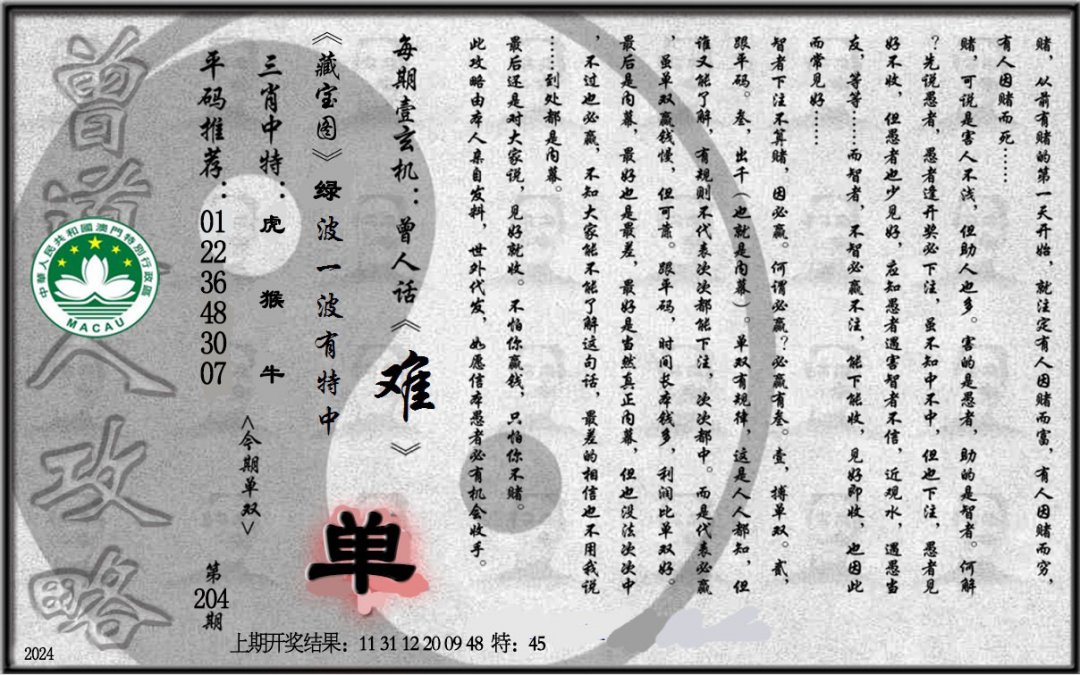 赌，从前有赌的第一天开始，就注定有人因赌而富，有人因赌而穷，
有人因赌而死……
赌，可说是害人不浅，但助人也多。害的是愚者，助的是智者。何解
？先说愚者，愚者逢开奖必下注，虽不知中不中，但也下注，愚者见
好不收，但愚者也少见好，应知愚者遇害智者不信，近观水，遇愚当
友，等等……而智者，不智必赢不注，能下能收，见好即收，也因此
而常见好……
智者下注不算赌，因必赢。何谓必赢？必赢有叁。壹，搏单双。贰，
跟平码。叁，出千（也就是内幕）。单双有规律，这是人人都知，但
谁又能了解，有规则不代表次次都能下注，次次都中。而是代表必赢
，虽单双赢钱慢，但可靠。跟平码，时间长本钱多，利润比单双好。
最后是内幕，最好也是最差，最好是当然真正内幕，但也没法次次中
，不过也必赢，不知大家能不能了解这句话，最差的相信也不用我说
……到处都是内幕。
最后还是对大家说，见好就收。不怕你赢钱，只怕你不赌。
此攻略由本人亲自发料，世外代发，如愿信本愚者必有机会收手。
每期壹玄机：曾人话《难》
《藏宝图》绿波一波有特中
单
三肖中特：虎 猴 牛
<今期单双>
平码推荐：01 22 36 48 30 07
第204期
曾道人攻略
中華人民共和國澳門特別行政區
MACAU
上期开奖结果：11 31 12 20 09 48 特：45
2024